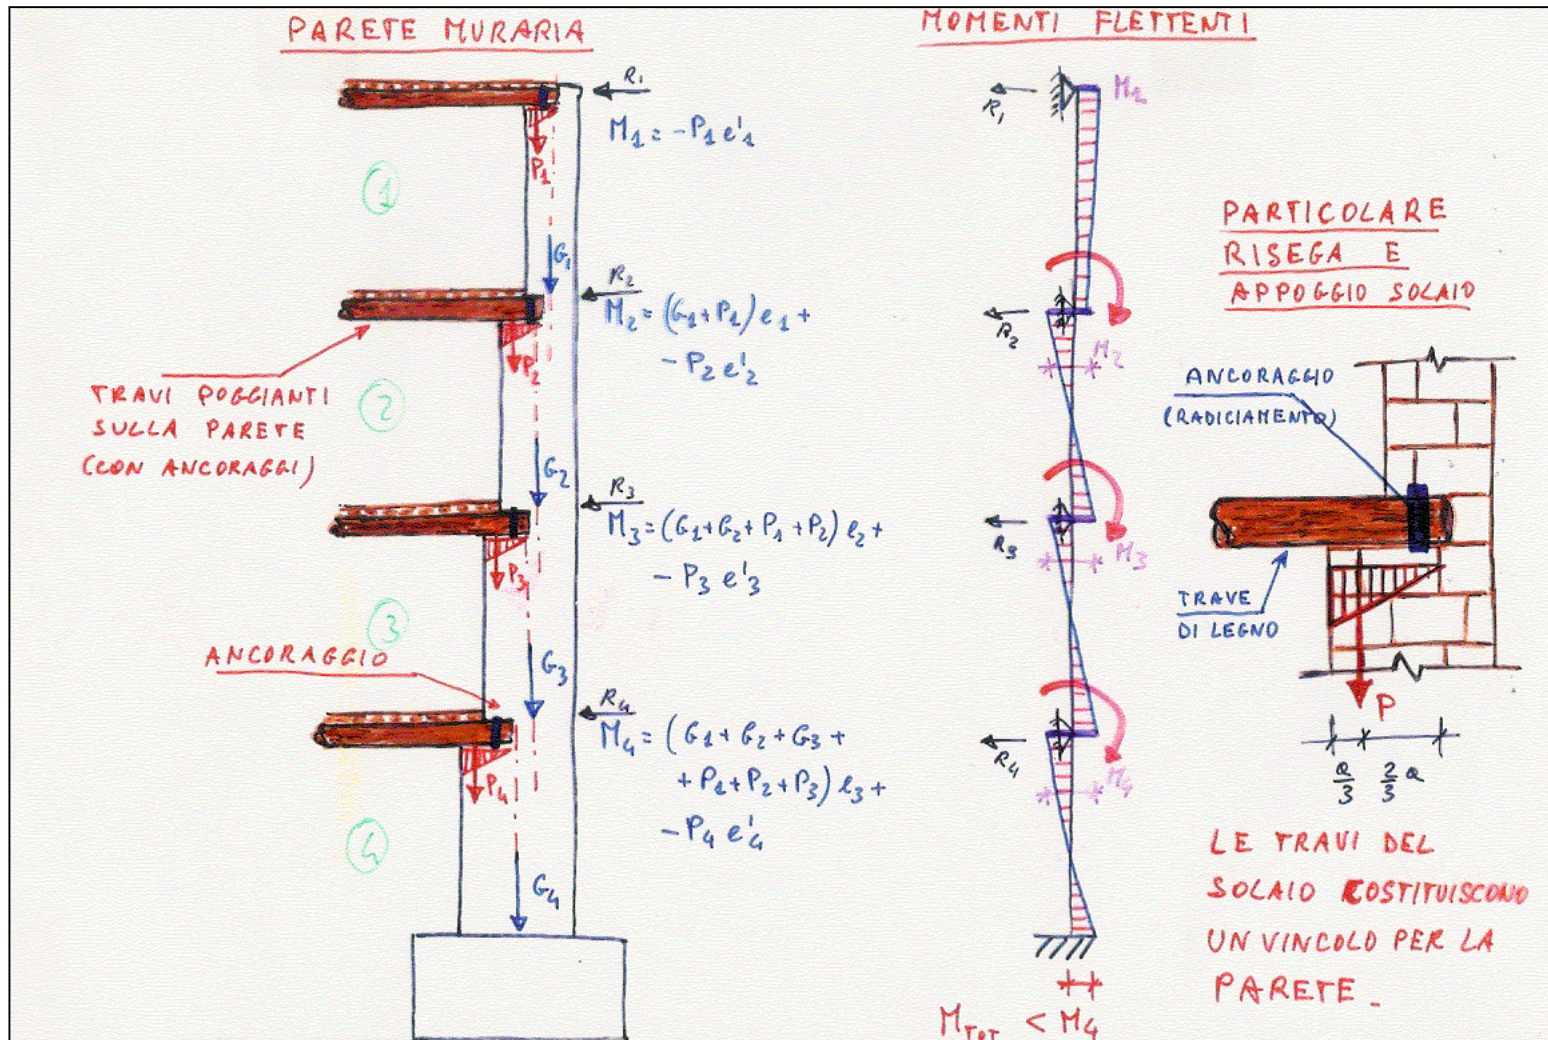 PARETE MURARIA
MOMENTI FLETTENTI
R1
M1 = -P1 e'1
P1
1
G1
R2
M2 = (G1+P1) e1 +
- P2 e'2
P2
TRAVI POGGIANTI
SULLA PARETE
(CON ANCORAGGI)
2
G2
R3
M3 = (G1+G2+P1+P2) e2 +
- P3 e'3
P3
3
ANCORAGGIO
G3
R4
M4 = (G1+G2+G3+
+P1+P2+P3) e3 +
- P4 e'4
P4
4
G4
R1
M1
R2
M2
R3
M3
R4
M4
MTOT < M4
PARTICOLARE
RISEGA E
APPOGGIO SOLAIO
ANCORAGGIO
(RADICIAMENTO)
TRAVE
DI LEGNO
P
a/3 2/3 a
LE TRAVI DEL
SOLAIO COSTITUISCONO
UN VINCOLO PER LA
PARETE_